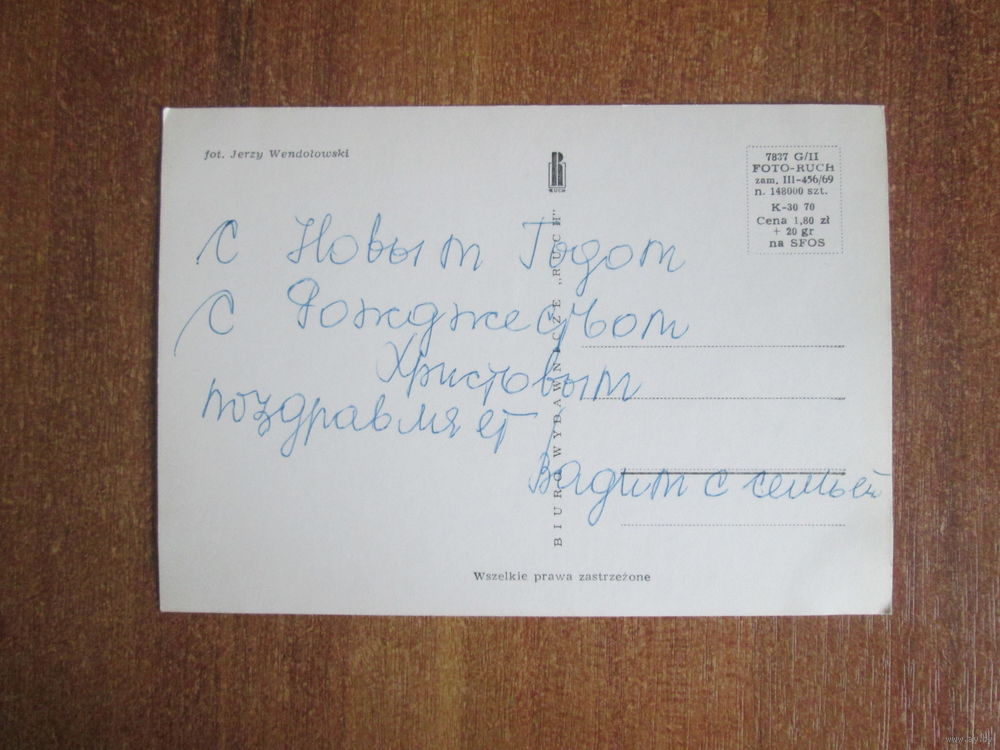 fot. Jerzy Wendołowski
RUCH
7837 G/II
FOTO-RUCH
zam. III-456/69
n. 148000 szt.
K-30 70
Cena 1,80 zł
+ 20 gr
na SFOS
С Новым Годом
С Рожджеством
Христовым
поздравляет
Вадим с семьей
BIURO WYDAWNICZE „RUCH"
Wszelkie prawa zastrzeżone
www.ay.by